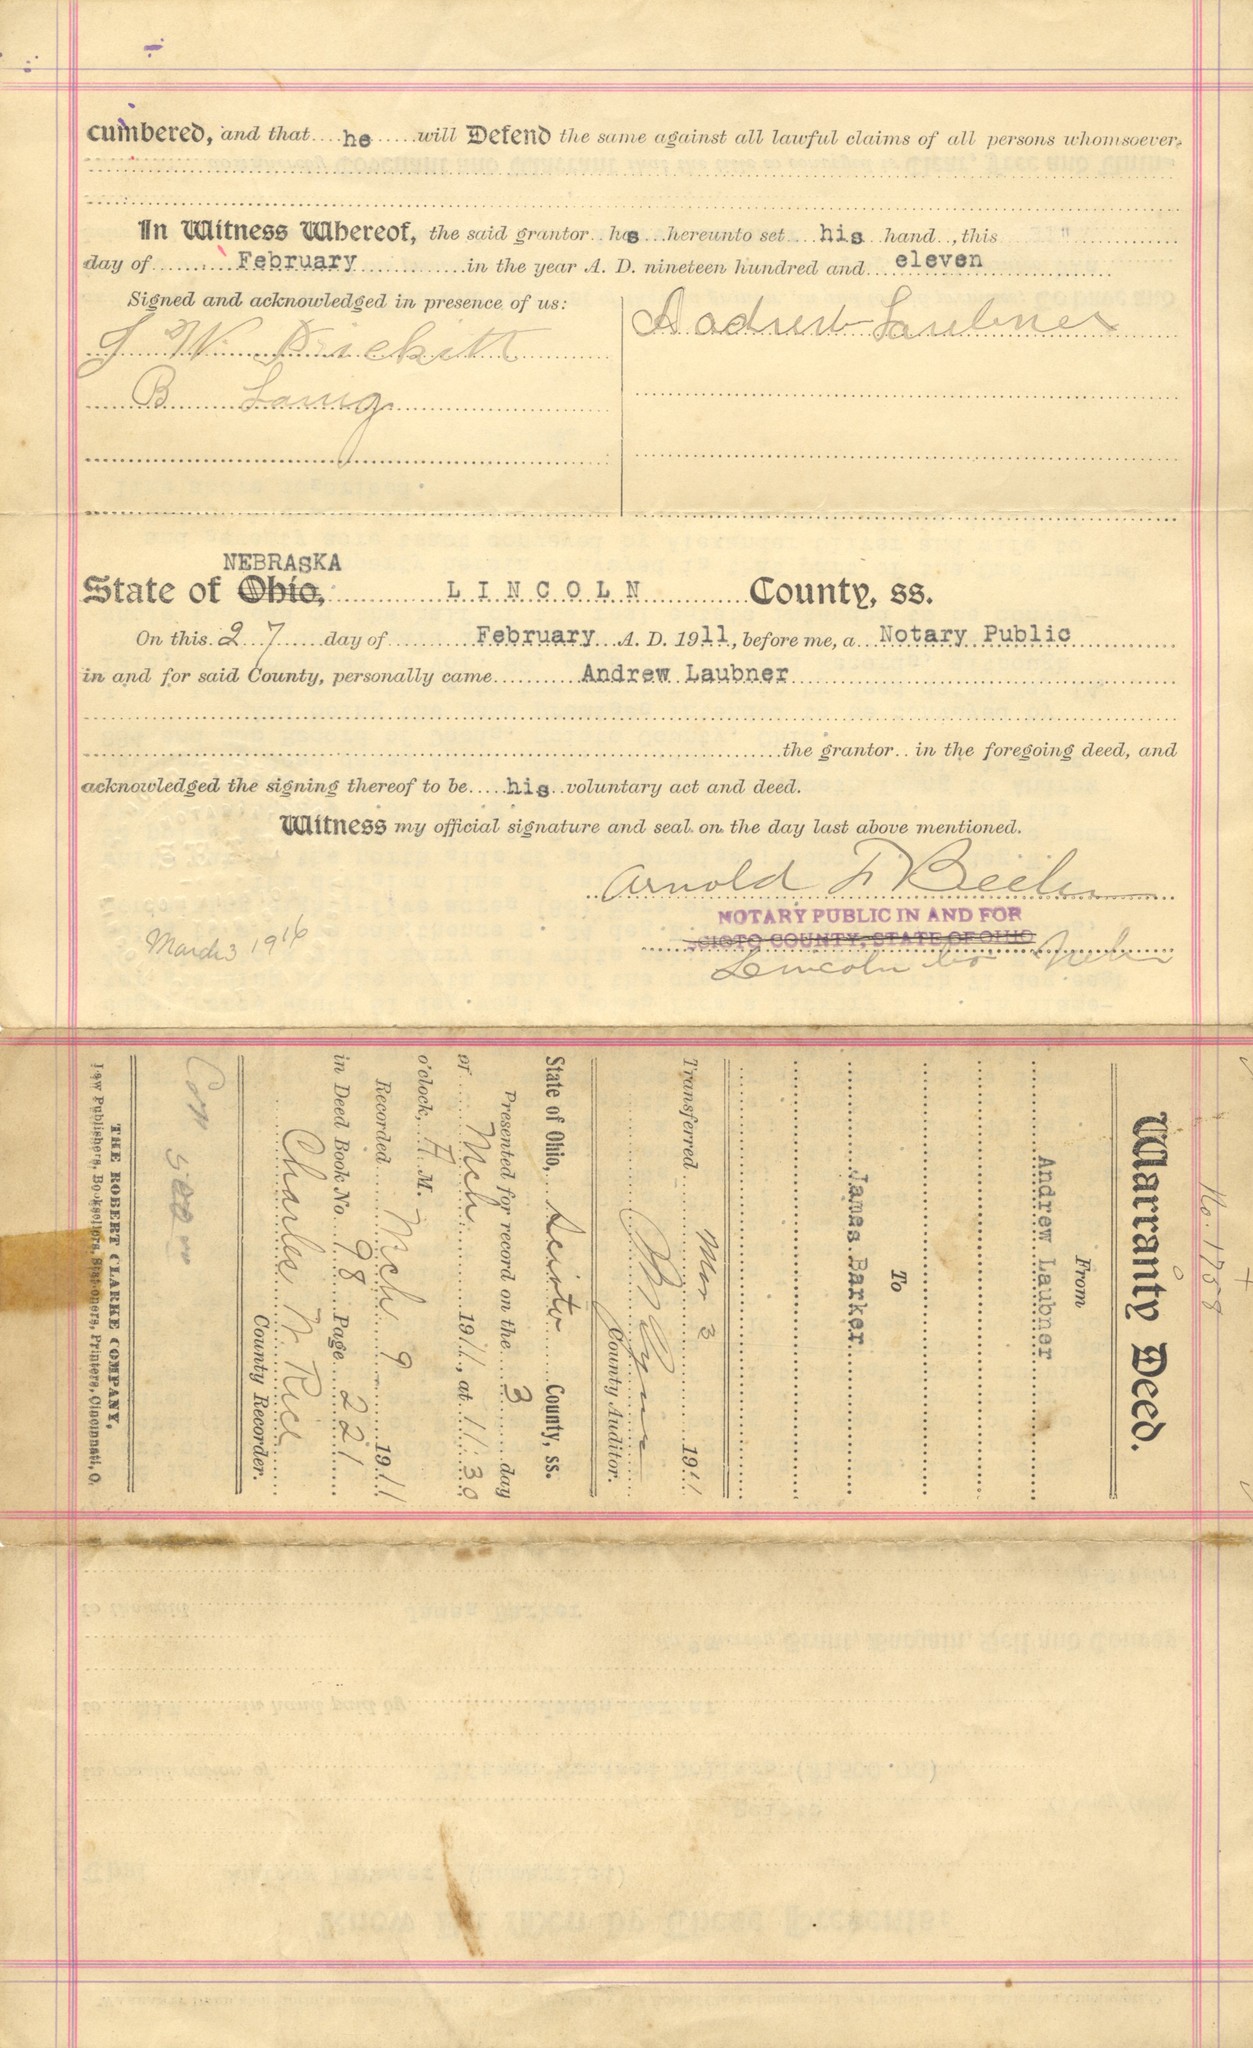 cumbered, and that he will Defend the same against all lawful claims of all persons whomsoever.
In Witness Whereof, the said grantor has hereunto set his hand, this "
day of February in the year A. D. nineteen hundred and eleven
Signed and acknowledged in presence of us:
Andrew Laubner
W.
B
NEBRASKA
State of Ohio, LINCOLN County, ss.
On this 27 day of February A. D. 1911, before me, a Notary Public
in and for said County, personally came Andrew Laubner
the grantor in the foregoing deed, and
acknowledged the signing thereof to be his voluntary act and deed.
Witness my official signature and seal on the day last above mentioned.
Arnold F Beeler
NOTARY PUBLIC IN AND FOR
SCIOTO COUNTY, STATE OF OHIO
Lincoln Co Nebr
March 3 1916
No. 1758
Warranty Deed.
From
Andrew Laubner
To
James Barker
Transferred Mar 3 1911
County Auditor.
State of Ohio, Scioto County, ss.
Presented for record on the 3 day
or Mch 1911, at 11:30
o'clock, A M.
Recorded Mch 9 1911
in Deed Book No. 98 Page 221
Charles W. Rice
County Recorder.
THE ROBERT CLARKE COMPANY,
Law Publishers, Booksellers, Stationers, Printers, Cincinnati, O.